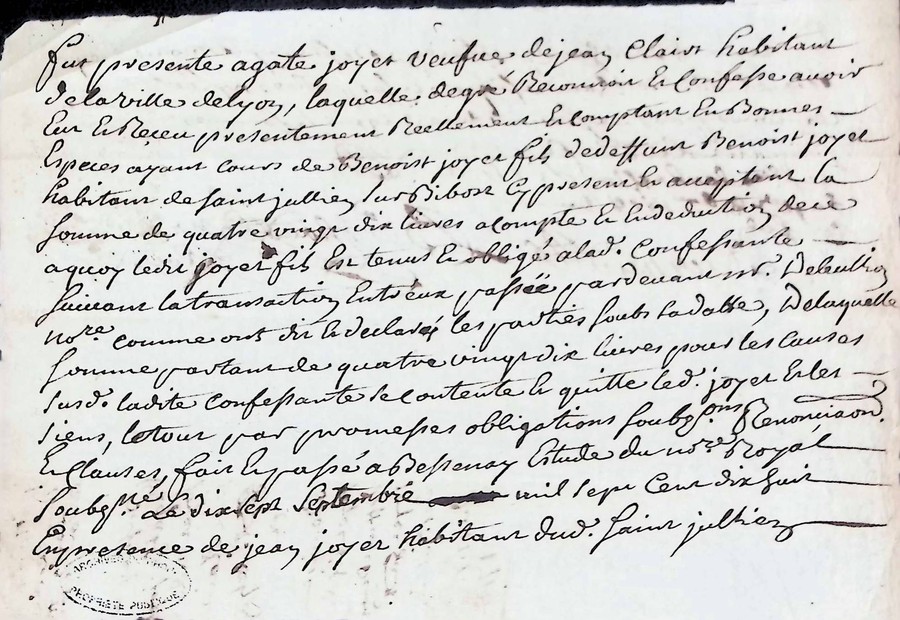 fut presente agate joyet veufue de jean Clairt habitant
de la ville de lyon, laquelle de gré Reconnoit Et Confesse auoir
Eut Et Receu presentement Reellement Et comptant En Bonnes
Especes ayant cours de Benoist joyet fils de deffunt Benoist joyet
habitant de saint jullien sur Bibost Cy present Et acceptent la
somme de quatre vingt dix liures a compte Et En deduction de ce
a quoy ledit joyet fils Est tenus Et obligé a lad. Confessante
suiuant la transaction Entr'eux passée par deuant mr.
nore. comme ont dit Et declaré les parties soubs sa datte, De laquelle
somme partant de quatre vingt dix liures pour les causes
susd. ladite confessante se contente Et quitte led. joyet Et les
siens, le tout par promesses obligations soubgons Renonciaon.
Et Clauses, fait Et passé a Bessenay Estude du nore Royal
soubgné. Le dix sept Septembre mil sept Cent dix huit
En presence de jean joyet habitant dud. saint jullien
PROPRIÉTÉ PUBLIQUE